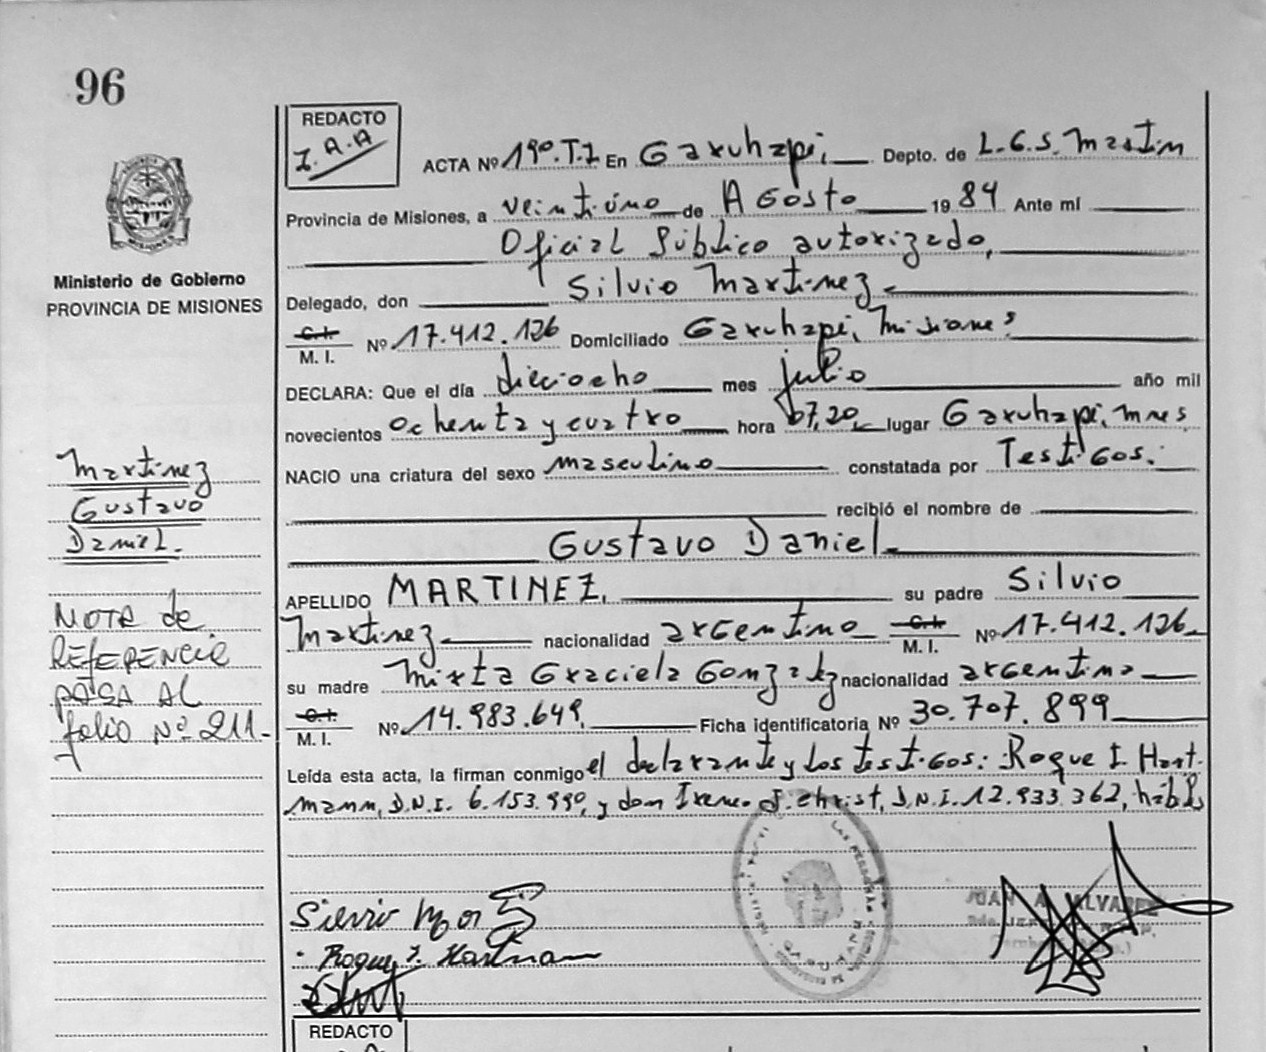 96
REDACTO
I.A.A
ACTA Nº 190.T.I En Garuhapi, Depto. de L.G.S. Martin
Provincia de Misiones, a veintiuno de Agosto 1984 Ante mí
Oficial Público autorizado,
Ministerio de Gobierno
PROVINCIA DE MISIONES
Delegado, don Silvio Martinez
C.I.
M. I. Nº 17.412.126 Domiciliado Garuhapi, Misiones
DECLARA: Que el día dieciocho mes julio año mil
novecientos ochenta y cuatro hora 07,20 lugar Garuhapi, Mnes
NACIO una criatura del sexo masculino constatada por Testigos.
recibió el nombre de
Gustavo Daniel
Martinez
Gustavo
Daniel.
APELLIDO MARTINEZ. su padre Silvio
Martinez nacionalidad argentino C.I. M. I. Nº 17.412.126
su madre Mirta Graciela Gonzalez nacionalidad argentina
C.I.
M. I. Nº 14.983.649. Ficha identificatoria Nº 30.707.899
NOTA de
REFERENCIA
PASA AL
folio Nº 211.
Leída esta acta, la firman conmigo el declarante y los testigos: Roque I. Hart
mann, D.N.I. 6.153.990, y don Ireneo J. Christ, D.N.I. 12.933.362, hábiles
JUAN A. ALVAREZ
Roque I. Hartmann
REDACTO